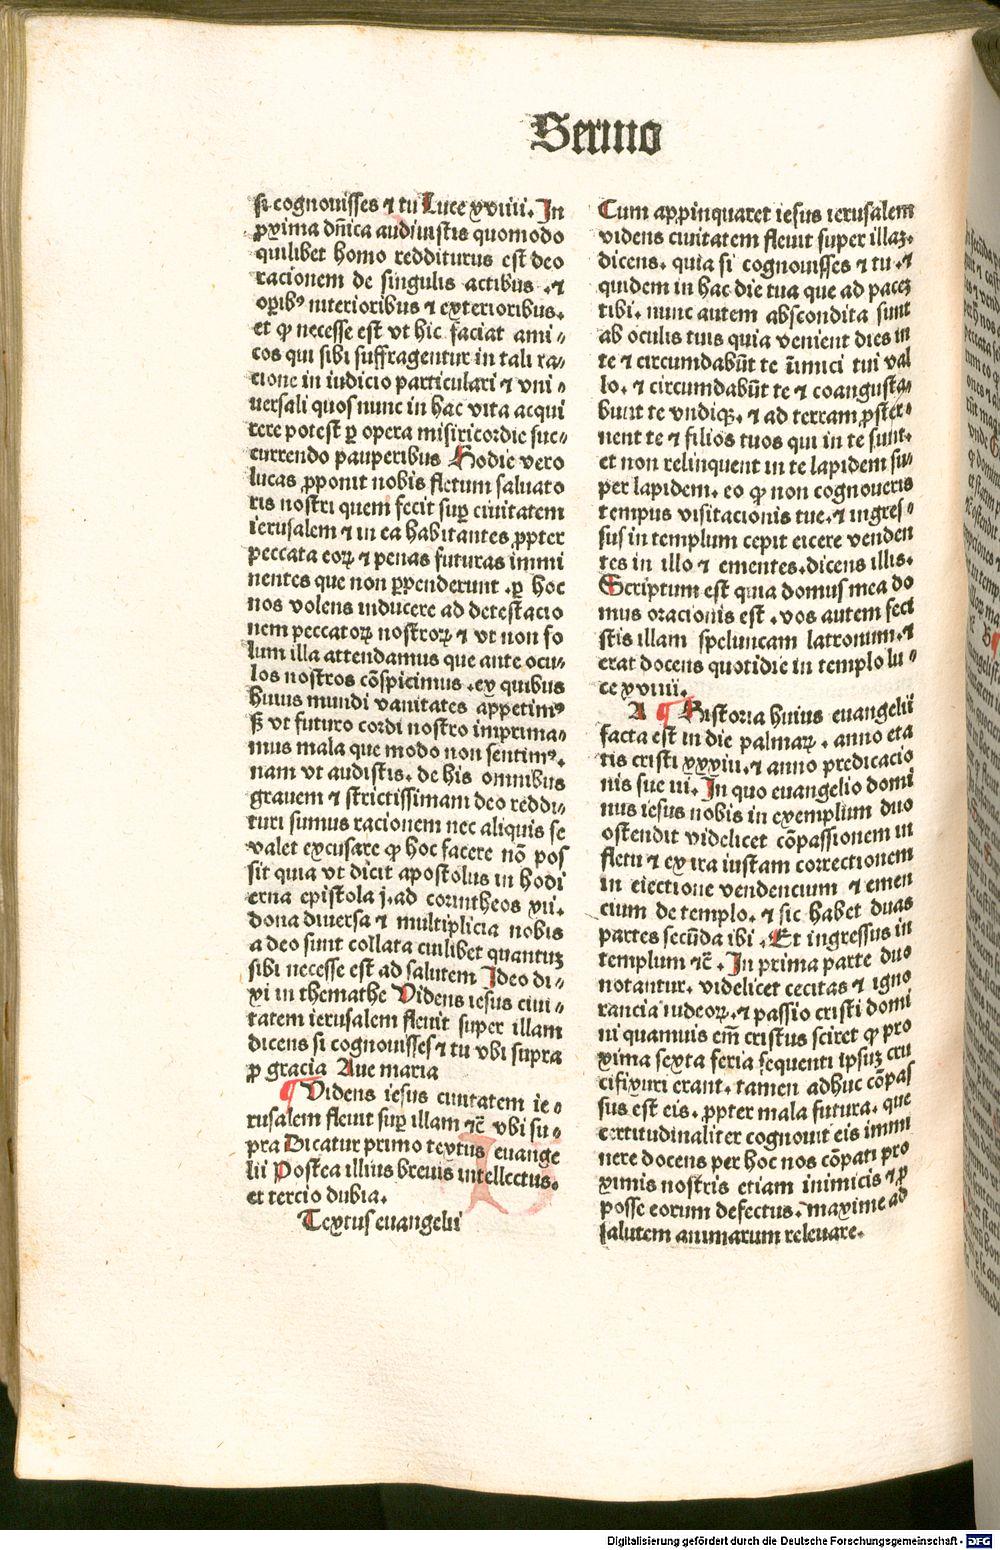 Sermo
si cognouisses ⁊ tu Luce xviiii. In
ꝓxima dn̄ica audiuistis quomodo
quilibet homo redditurus est deo
racionem de singulis actibus .⁊
oꝑibꝰ interioribus ⁊ exterioribus.
et ꝙ necesse est vt hic faciat ami⸗
cos qui sibi suffragentur in tali ra⸗
cione in iudicio particulari ⁊ vni⸗
uersali quos nunc in hac vita acqui
rere potest ꝑ opera misiricordie suc⸗
currendo pauperibus Hodie vero
lucas ꝓponit nobis fletum saluato
ris nostri quem fecit suꝑ ciuitatem
ierusalem ⁊ in ea habitantes ꝓpter
peccata eoꝝ ⁊ penas futuras immi
nentes que non ꝑpenderunt .ꝑ hoc
nos volens inducere ad detestacio
nem peccatoꝝ nostroꝝ ⁊ vt non so
lum illa attendamus que ante ocu⸗
los nostros cōspicimus .ex quibus
huius mundi vanitates appetimꝰ
ß vt futuro cordi nostro imprima⸗
mus mala que modo non sentimꝰ.
nam vt audistis. de his omnibus
grauem ⁊ strictissimam deo reddi⸗
turi sumus racionem nec aliquis se
valet excusare ꝙ hoc facere nō pos
sit quia vt dicit apostolus in hodi
erna epistola j. ad corintheos xii.
dona diuersa ⁊ multiplicia nobis
a deo sunt collata cuilibet quantuꝫ
sibi necesse est ad salutem Ideo di⸗
xi in themathe Videns iesus ciui⸗
tatem ierusalem fleuit super illam
dicens si cognouisses ⁊ tu vbi supra
ꝓ gracia Aue maria
¶ Videns iesus ciuitatem ie⸗
rusalem fleuit suꝑ illam ⁊c̄ vbi su⸗
pra Dicatur primo textus euange
lii Postea illius breuis intellectus.
et tercio dubia.
Textus euangelii
Cum apꝓinquaret iesus ierusalem
videns ciuitatem fleuit super illaꝫ.
dicens. quia si cognouisses ⁊ tu .⁊
quidem in hac die tua que ad paceꝫ
tibi. nunc autem abscondita sunt
ab oculis tuis quia venient dies in
te ⁊ circumdabūt te īimici tui val
lo. ⁊ circumdabūt te ⁊ coangusta⸗
bunt te vndiqꝫ. ⁊ ad terram ꝓster⸗
nent te ⁊ filios tuos qui in te sunt.
et non relinquent in te lapidem su⸗
per lapidem. eo ꝙ non cognoueris
tempus visitacionis tue. ⁊ ingres⸗
sus in templum cepit eicere venden
tes in illo ⁊ ementes. dicens illis.
Scriptum est quia domus mea do
mus oracionis est . vos autem feci
stis illam speluncam latronum. ⁊
erat docens quotidie in templo lu⸗
ce xviiii.
A ¶ Historia huius euangelii
facta est in die palmaꝝ . anno eta
tis cristi xxxiii. ⁊ anno predicacio
nis sue iii. In quo euangelio domi
nus iesus nobis in exemplum duo
ostendit videlicet cōpassionem in
fletu ⁊ ex ira iustam correctionem
in eiectione vendencium ⁊ emen
cium de templo. ⁊ sic habet duas
partes secūda ibi . Et ingressus in
templum ⁊c̄ . In prima parte duo
notantur. videlicet cecitas ⁊ igno
rancia iudeoꝝ. ⁊ passio cristi domi
ni quamuis em̄ cristus sciret ꝙ pro
xima sexta feria sequenti ipsuꝫ cru
cifixuri erant. tamen adhuc cōpas
sus est eis. ꝓpter mala futura. que
certitudinaliter cognouit eis immi
nere docens per hoc nos cōpati pro
ximis nostris etiam inimicis ⁊ ꝓ
posse eorum defectus. maxime ad
salutem animarum releuare.
Digitalisierung gefördert durch die Deutsche Forschungsgemeinschaft - DFG